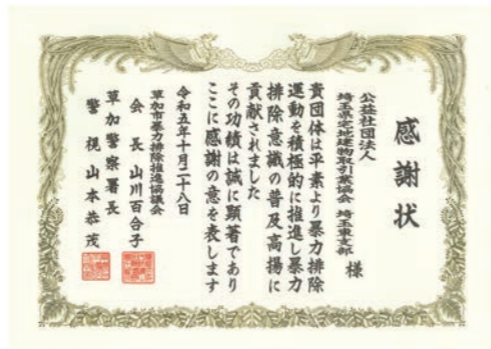 感謝状
公益社団法人
埼玉県宅地建物取引業協会 埼玉東支部
様
貴団体は平素より暴力排除
運動を積極的に推進し暴力
排除意識の普及高揚に
貢献されました
その功績は誠に顕著であり
ここに感謝の意を表します
令和五年十月二十八日
草加市暴力排除推進協議会
会長 山川百合子
草加警察署長
警視 山本恭茂